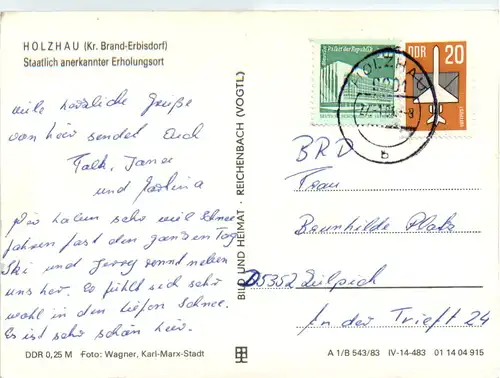 HOLZHAU (Kr. Brand-Erbisdorf)
Staatlich anerkannter Erholungsort
viele herzliche Grüße
von hier sendet Euch
Falk, Jana
und Martina
Wir haben sehr viel Schnee
fahren fast den ganzen Tag
Ski und Jerry rennt neben
uns her. Es fühlt sich sehr
wohl in den tiefen Schnee.
Es ist sehr schön hier.
DDR 0,25 M Foto: Wagner, Karl-Marx-Stadt
BILD UND HEIMAT · REICHENBACH (VOGTL)
Palast der Republik
DDR 20
HOLZHAU
9201
b
BRD
Frau
Brunhilde Platz
D5352 Zülpich
In der Trieft 24
A 1/B 543/83 IV-14-483 01 14 04 915